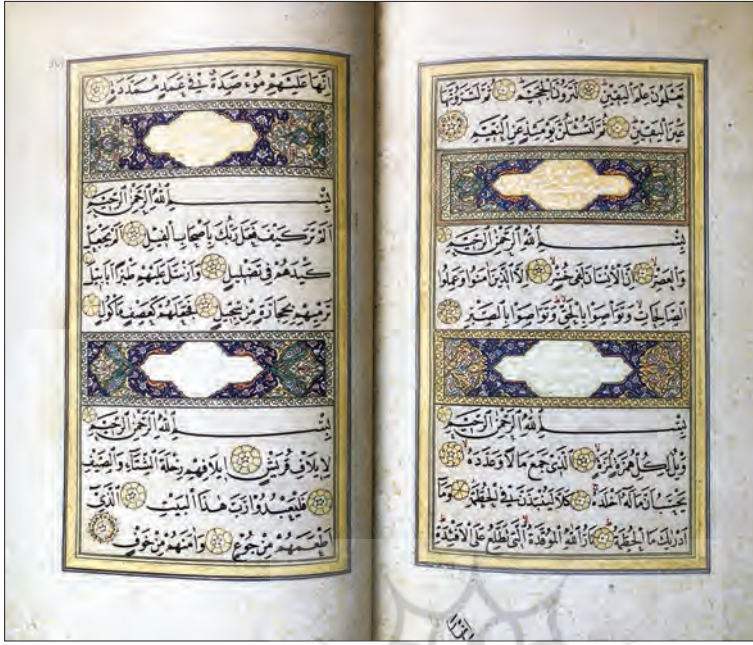 تَعْلَمُونَ عِلْمَ الْيَقِينِ لَتَرَوُنَّ الْجَحِيمَ ثُمَّ لَتَرَوُنَّهَا
عَيْنَ الْيَقِينِ ثُمَّ لَتُسْـَٔلُنَّ يَوْمَئِذٍ عَنِ النَّعِيمِ
بِسْمِ اللّٰهِ الرَّحْمٰنِ الرَّحِيمِ
وَالْعَصْرِ اِنَّ الْاِنْسَانَ لَفِى خُسْرٍ اِلَّا الَّذِينَ اٰمَنُوا وَعَمِلُوا
الصَّالِحَاتِ وَتَوَاصَوْا بِالْحَقِّ وَتَوَاصَوْا بِالصَّبْرِ
بِسْمِ اللّٰهِ الرَّحْمٰنِ الرَّحِيمِ
وَيْلٌ لِكُلِّ هُمَزَةٍ لُمَزَةٍ اَلَّذِى جَمَعَ مَالًا وَعَدَّدَهُ
يَحْسَبُ اَنَّ مَالَهُ اَخْلَدَهُ كَلَّا لَيُنْبَذَنَّ فِى الْحُطَمَةِ وَمَا
اَدْرٰيكَ مَا الْحُطَمَةُ نَارُ اللّٰهِ الْمُوقَدَةُ اَلَّتِى تَطَّلِعُ عَلَى الْاَفْئِدَةِ
اِنَّهَا
اِنَّهَا عَلَيْهِمْ مُؤْصَدَةٌ فِى عَمَدٍ مُمَدَّدَةٍ
بِسْمِ اللّٰهِ الرَّحْمٰنِ الرَّحِيمِ
اَلَمْ تَرَ كَيْفَ فَعَلَ رَبُّكَ بِاَصْحَابِ الْفِيلِ اَلَمْ يَجْعَلْ
كَيْدَهُمْ فِى تَضْلِيلٍ وَاَرْسَلَ عَلَيْهِمْ طَيْرًا اَبَابِيلَ
تَرْمِيهِمْ بِحِجَارَةٍ مِنْ سِجِّيلٍ فَجَعَلَهُمْ كَعَصْفٍ مَأْكُولٍ
بِسْمِ اللّٰهِ الرَّحْمٰنِ الرَّحِيمِ
لِاِيلَافِ قُرَيْشٍ اِيلَافِهِمْ رِحْلَةَ الشِّتَاءِ وَالصَّيْفِ
فَلْيَعْبُدُوا رَبَّ هٰذَا الْبَيْتِ اَلَّذِى
اَطْعَمَهُمْ مِنْ جُوعٍ وَاٰمَنَهُمْ مِنْ خَوْفٍ